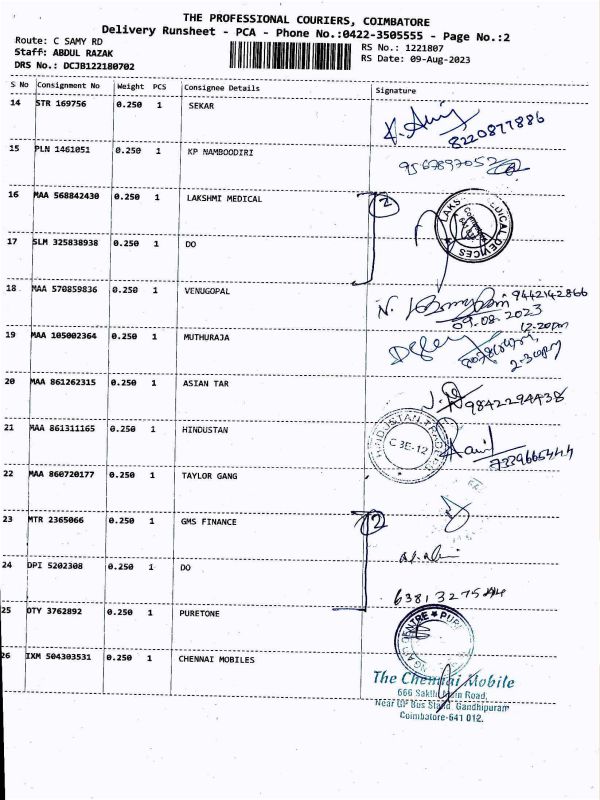 THE PROFESSIONAL COURIERS, COIMBATORE
Delivery Runsheet - PCA - Phone No.:0422-3505555 - Page No.:2
Route: C SAMY RD
RS No.: 1221807
Staff: ABDUL RAZAK
RS Date: 09-Aug-2023
DRS No.: DCJB122180702
S No Consignment No Weight PCS Consignee Details Signature
14 STR 169756 0.250 1 SEKAR
8220877886
15 PLN 1461051 0.250 1 KP NAMBOODIRI
9567897052
16 MAA 568842430 0.250 1 LAKSHMI MEDICAL 2
17 SLM 325838938 0.250 1 DO
18 MAA 570859836 0.250 1 VENUGOPAL 9442142866
09.08.2023
12.20pm
19 MAA 105002364 0.250 1 MUTHURAJA
2-30pm
20 MAA 861262315 0.250 1 ASIAN TAR
9842294438
21 MAA 861311165 0.250 1 HINDUSTAN
HINDUSTAN
CBE-12
7339665444
22 MAA 860720177 0.250 1 TAYLOR GANG
23 MTR 2365066 0.250 1 GMS FINANCE 2
24 DPI 5202308 0.250 1 DO
25 OTY 3762892 0.250 1 PURETONE
26 IXM 504303531 0.250 1 CHENNAI MOBILES
The Chennai Mobile
666 Sakthi Main Road,
Near GP Bus Stand Gandhipuram
Coimbatore-641 012.